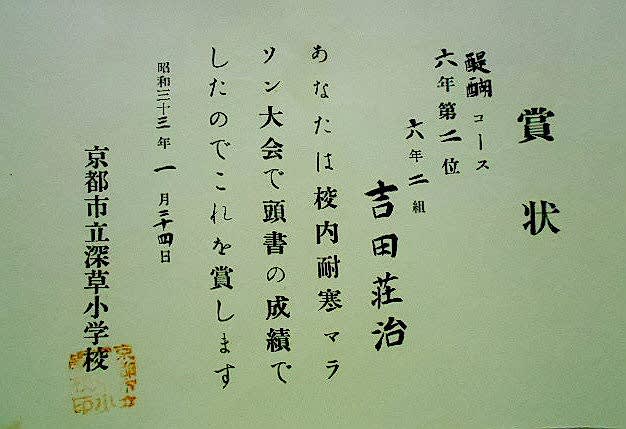 賞状
醍醐コース
六年第二位
六年二組
吉田荘治
あなたは校内耐寒マラ
ソン大会で頭書の成績で
したのでこれを賞します
昭和三十三年一月二十四日
京都市立深草小学校